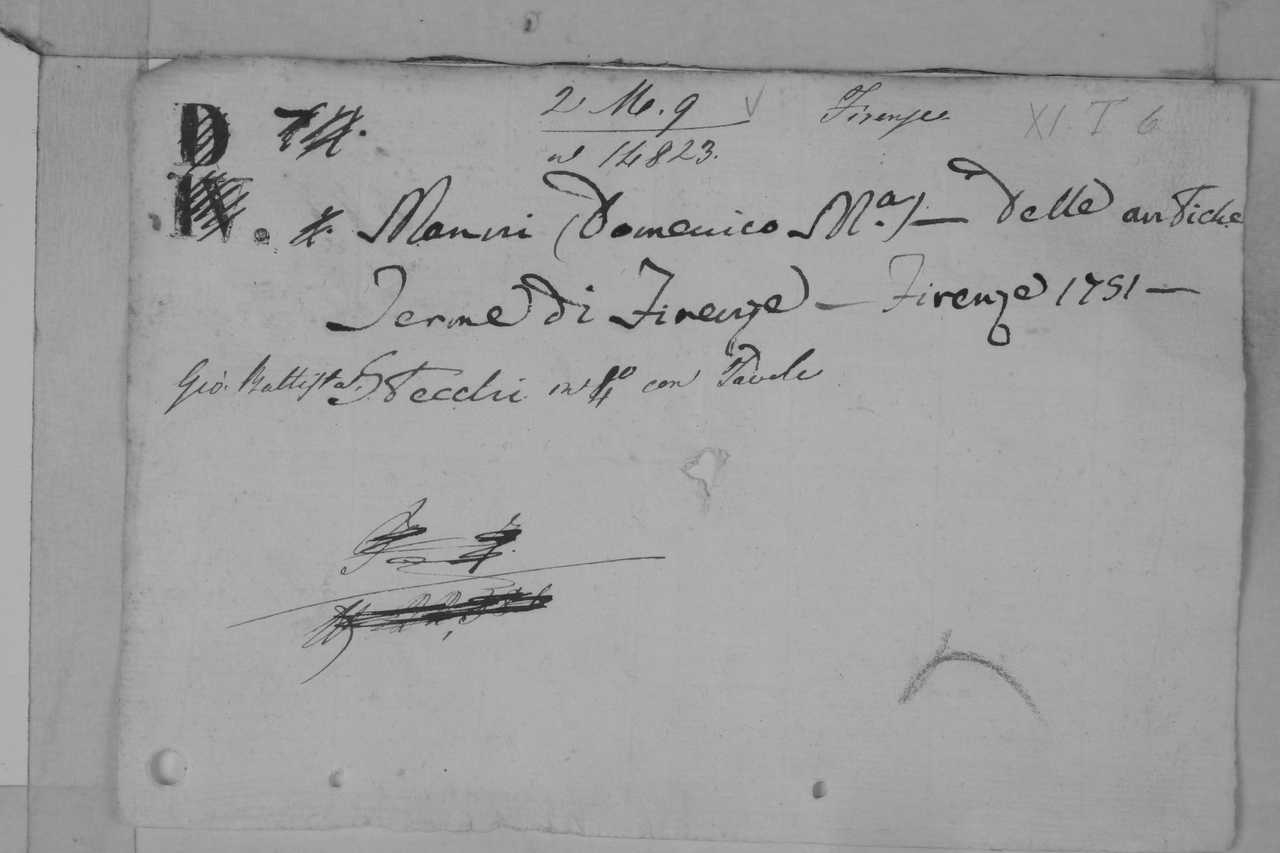 D 74. 2 M. 9 V Firenze XI T 6
n° 14823.
N. 4. Manni (Domenico M.a) — Delle antiche
Terme di Firenze — Firenze 1751 —
Gio. Battista Stecchi in 4° con Tavole